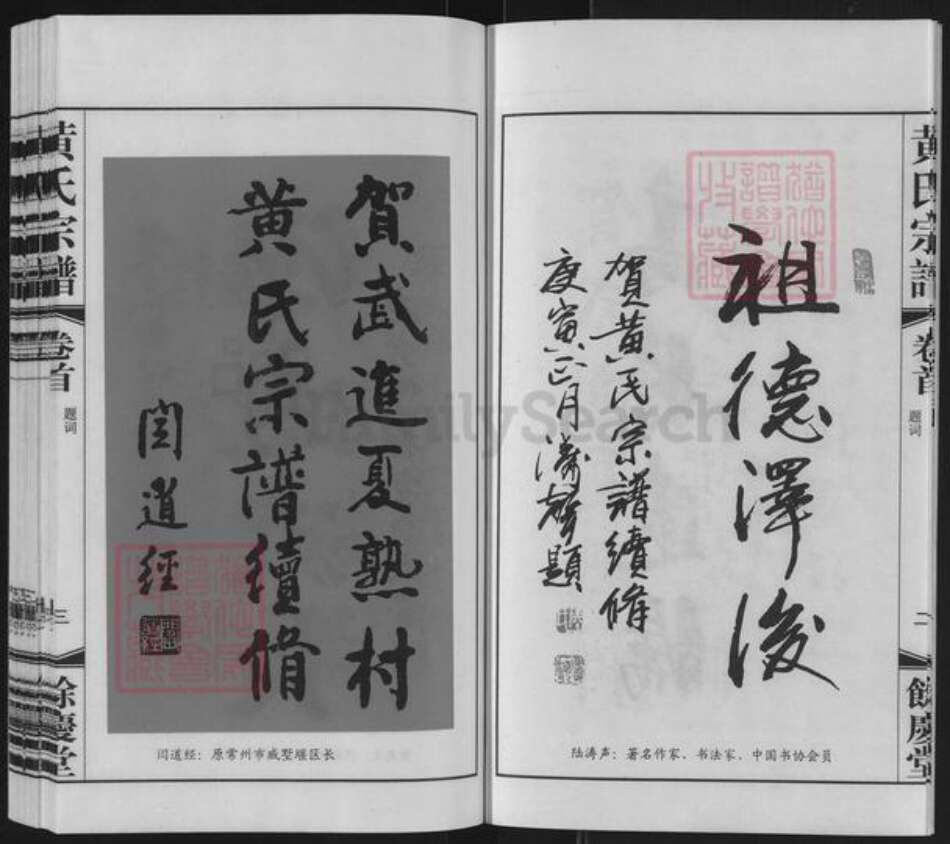 黄氏宗譜
卷首
题词
二
餘慶堂
祖德澤後
賀黄氏宗譜續脩
庚寅正月濤聲題
陆涛声：著名作家、书法家、中国书协会员
賀武進夏熟村
黄氏宗譜續脩
闾道經
闾道经：原常州市戚墅堰区长
黄氏宗譜
卷首
题词
三
餘慶堂
FamilySearch